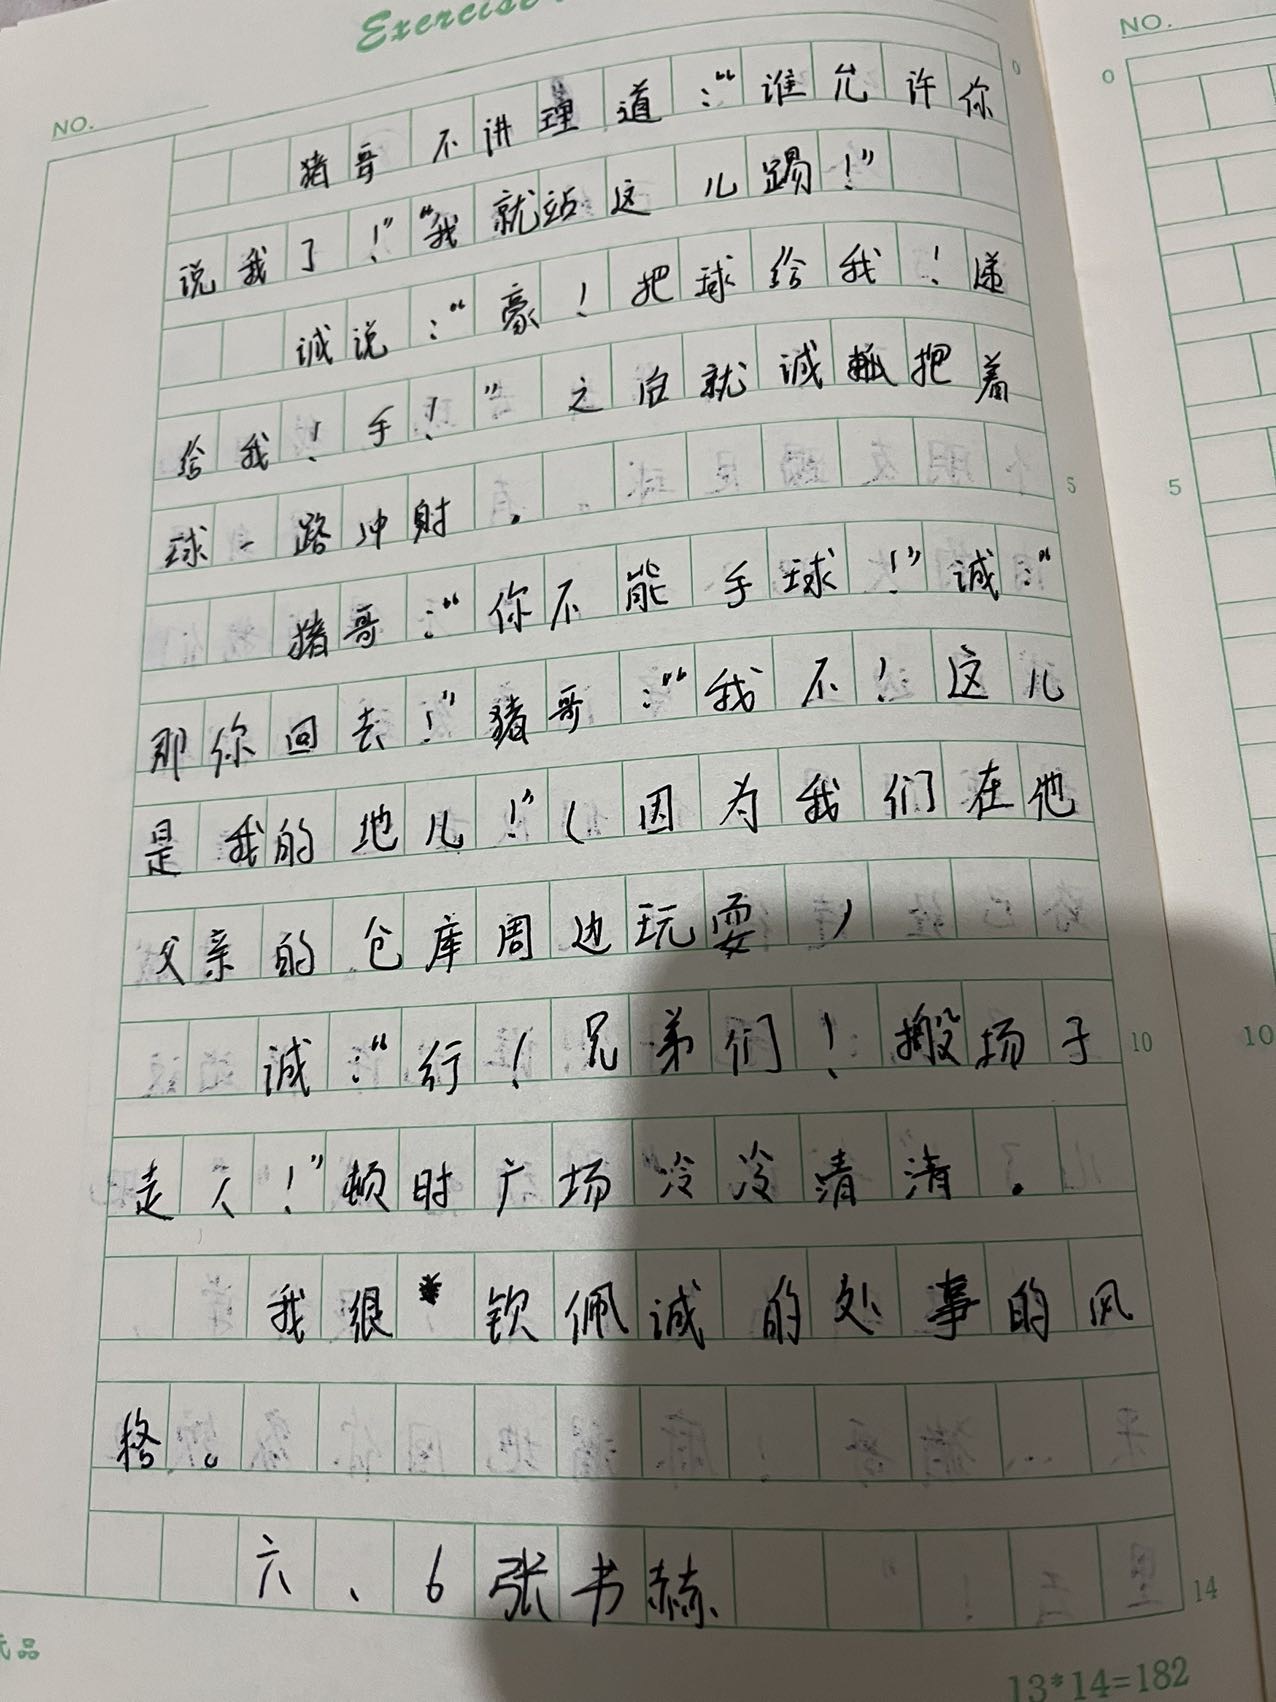 Exercise
NO.
NO.
0
0
猪哥不讲理道：“谁允许你
说我了！”“我就站这儿踢！”
诚说：“豪！把球给我！递
给我！手！”之后就诚抓把着
球一路冲射。
5
5
猪哥：“你不能手球！”诚：“
那你回去！”猪哥：“我不！这儿
是我的地儿！”（因为我们在他
父亲的仓库周边玩耍）
诚：“行！兄弟们！搬场子
10
10
走人！”顿时广场冷冷清清。
我很钦佩诚的处事的风
格。
六、6张书赫
14
品
13*14=182